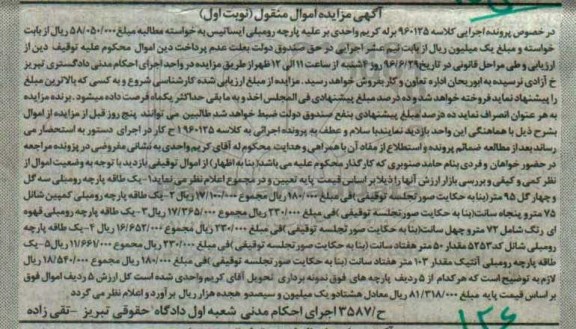 آگهی مزایده اموال منقول (نوبت اول)
در خصوص پرونده اجرایی کلاسه ۹۶۰۱۲۵ برله کریم واحدی بر علیه پارچه رومبلی ایساتیس به خواسته مطالبه مبلغ ۵۸/۰۵۰/۰۰۰ ریال از بابت
خواسته و مبلغ یک میلیون ریال از بابت نیم عشر اجرایی در حق صندوق دولت بعلت عدم پرداخت دین اموال محکوم علیه توقیف دین از
ارزیابی و طی مراحل قانونی در تاریخ ۹۶/۶/۲۹ روز ۴شنبه از ساعت ۱۱ الی ۱۲ ظهر از طریق مزایده در واحد اجرای احکام مدنی دادگستری تبریز
خ آزادی نرسیده به ابوریحان اداره تعاون و کار بفروش خواهد رسید. مزایده از مبلغ ارزیابی شده کارشناسی شروع و به کسی که بالاترین مبلغ
را پیشنهاد نماید فروخته خواهد شد و ده درصد مبلغ پیشنهادی فی المجلس اخذ و به ما بقی حداکثر یکماه فرصت داده میشود. برنده مزایده
به هر عنوان انصراف نماید ده درصد مبلغ پیشنهادی بنفع صندوق دولت ضبط خواهد شد طالبین می توانند پنج روز قبل از مزایده از اموال
بشرح ذیل با هماهنگی این واحد بازدید نمایند با سلام و عطف به پرونده اجرائی به کلاسه ۱۹۶۰۱۲۵ ح کار در اجرای دستور به استحضار می
رساند بعد از مطالعه ضمائم پرونده و استطلاع از مفاد آن با همراهی و هدایت محکوم له آقای کریم واحدی به نشانی مفروضی در پرونده مراجعه
در حضور خواهان و فردی بنام حامد صنوبری که کارگذار محکوم علیه می باشد (بنا به اظهار) از اموال توقیفی بازدید با توجه به وضعیت اموال از
نظر کمی و کیفی و بررسی بازار ارزش آنها را ذیلا بر اساس قیمت پایه تعیین و در مجموع اعلام نظر می نماید ۱- یک طاقه پارچه رومبلی سه گل
و چهار گل ۹۵ متر (بنا به حکایت صورتجلسه توقیفی) فی مبلغ ۱۸۰/۰۰۰ ریال مجموع ۱۷/۱۰۰/۰۰۰ ریال ۲- یک طاقه پارچه رومبلی کمپین شانل
۷۵ متر و پنجاه سانت (بنا به حکایت صورتجلسه توقیفی) فی مبلغ ۲۳۰/۰۰۰ ریال مجموع ۱۷/۳۶۵/۰۰۰ ریال ۳- یک طاقه پارچه رومبلی قهوه
ای رنگ شامل ۷۲ متر و چهل سانت (بنا به حکایت صورتجلسه توقیفی) فی مبلغ ۲۳۰/۰۰۰ ریال مجموع ۱۶/۶۵۲/۰۰۰ ریال ۴- یک طاقه پارچه
رومبلی شانل کد ۵۲۵۳ مقدار ۵۰ متر هفتاد سانت (بنا به حکایت صورتجلسه توقیفی) فی مبلغ ۲۳۰/۰۰۰ ریال مجموع ۱۱/۶۶۷/۰۰۰ ریال ۵- یک
طاقه پارچه رومبلی آنتیک مقدار ۱۰۳ متر هفتاد سانت (بنا به حکایت صورتجلسه توقیفی) فی مبلغ ۱۸۰/۰۰۰ ریال مجموع ۱۸/۵۴۰/۰۰۰ ریال
لازم به توضیح است که هر کدام از ۵ ردیف پارچه های فوق نمونه برداری تحویل آقای کریم واحدی شده است گل ارزش ۵ ردیف اموال فوق
بر اساس قیمت پایه مبلغ ۸۱/۳۱۸/۰۰۰ ریال معادل هشتادو یک میلیون و سیصدو هجده هزار ریال برآورد و اعلام نظر می گردد
ح/۳۵۸۷ اجرای احکام مدنی شعبه اول دادگاه حقوقی تبریز - تقی زاده